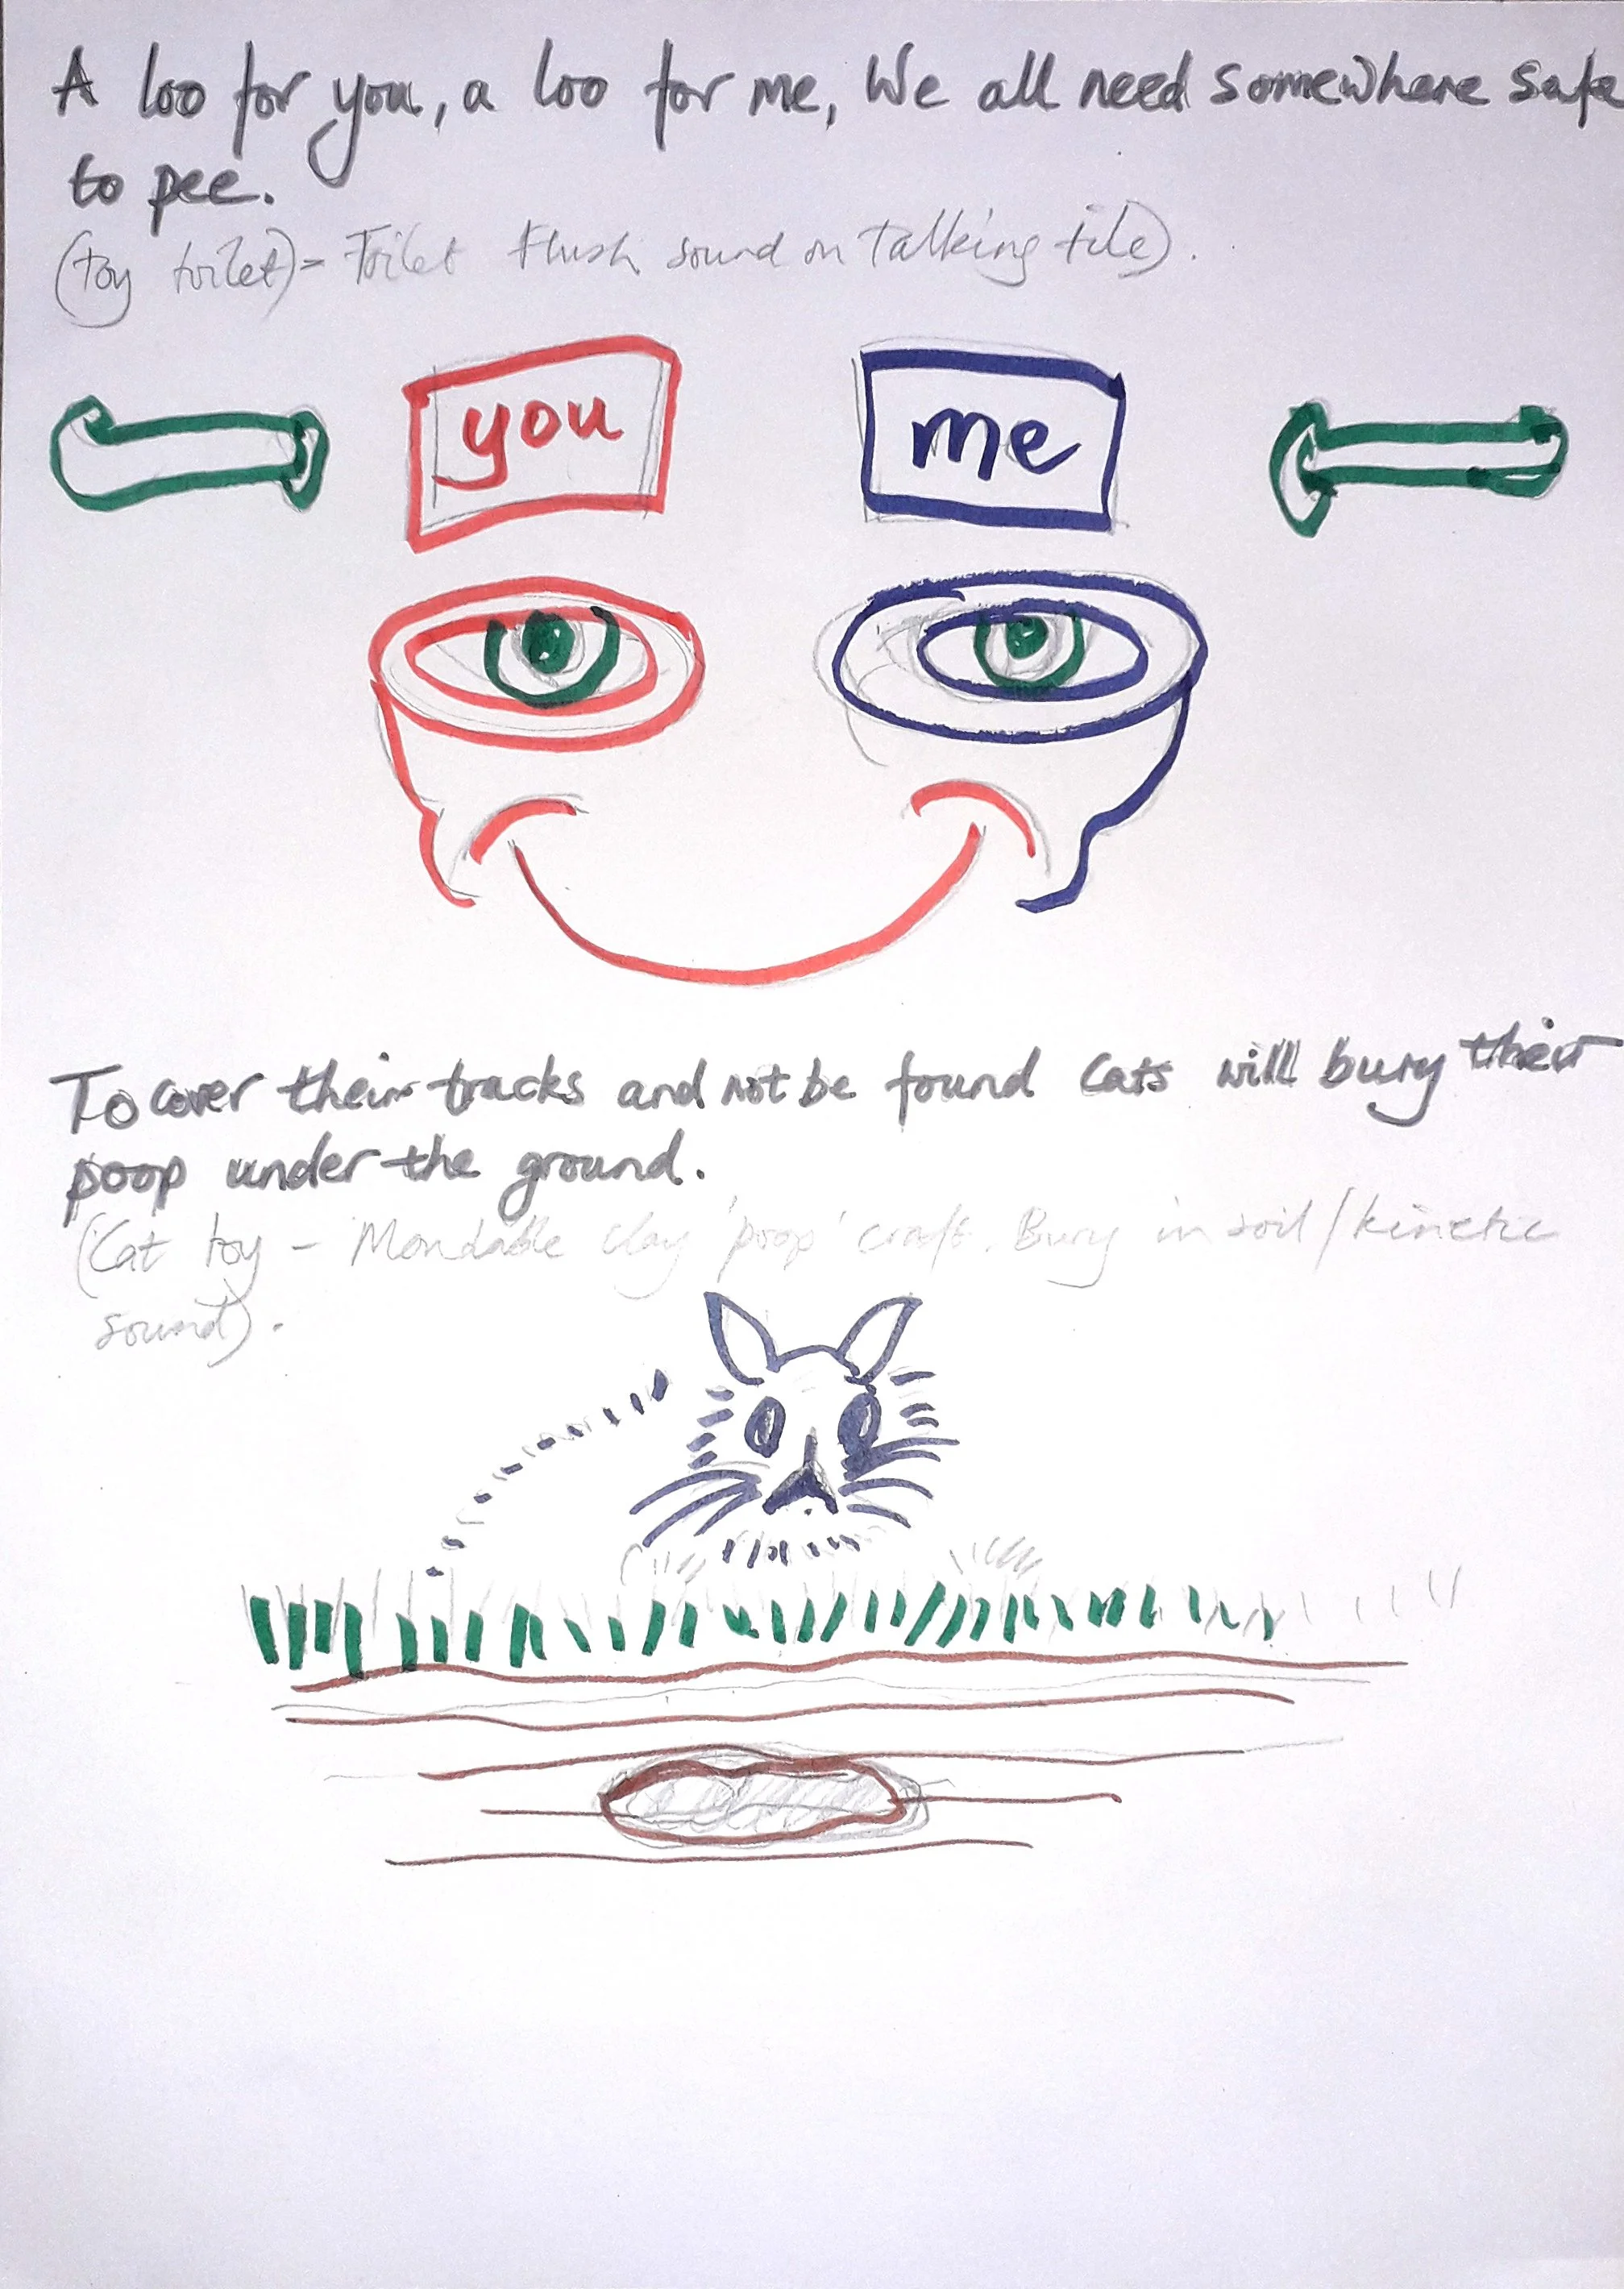 A loo for you, a loo for me, We all need somewhere safe
to pee.
(toy toilet) = Toilet Flush sound on Talking tile).
you
me
To cover their tracks and not be found Cats will bury their
poop under the ground.
(Cat toy - Mondable clay 'poop' craft. Bury in soil/kinetic
sound).